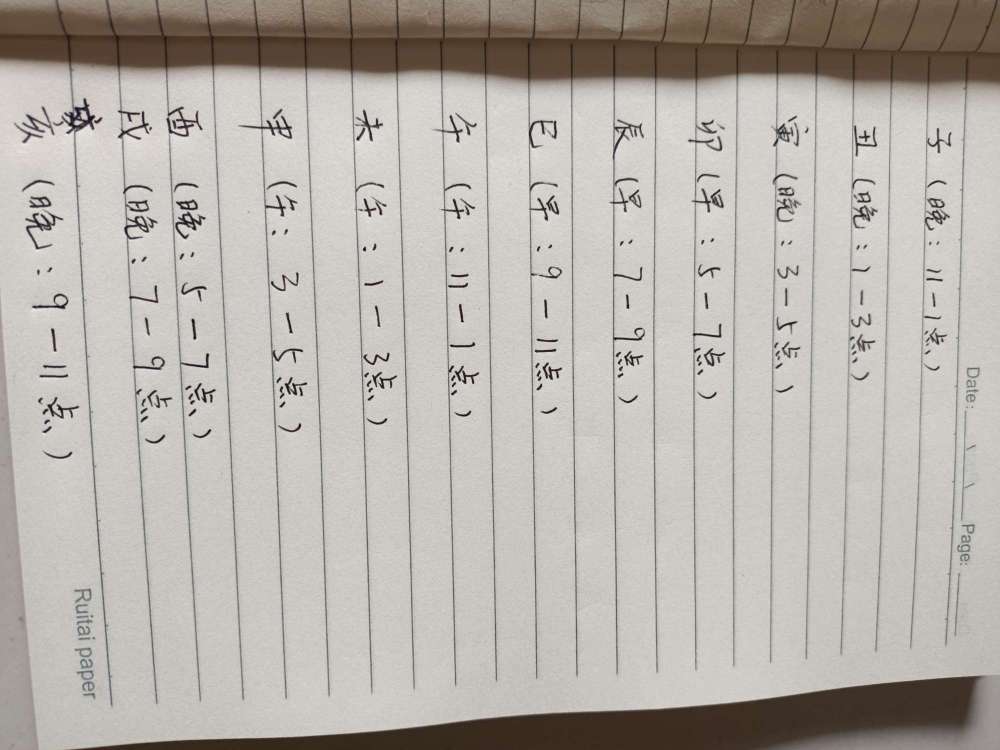 Date: Page:
子(晚:11-1点)
丑(晚:1-3点)
寅(晚:3-5点)
卯(早:5-7点)
辰(早:7-9点)
巳(早:9-11点)
午(午:11-1点)
未(午:1-3点)
申(午:3-5点)
酉(晚:5-7点)
戌(晚:7-9点)
亥(晚:9-11点)
Ruitai paper